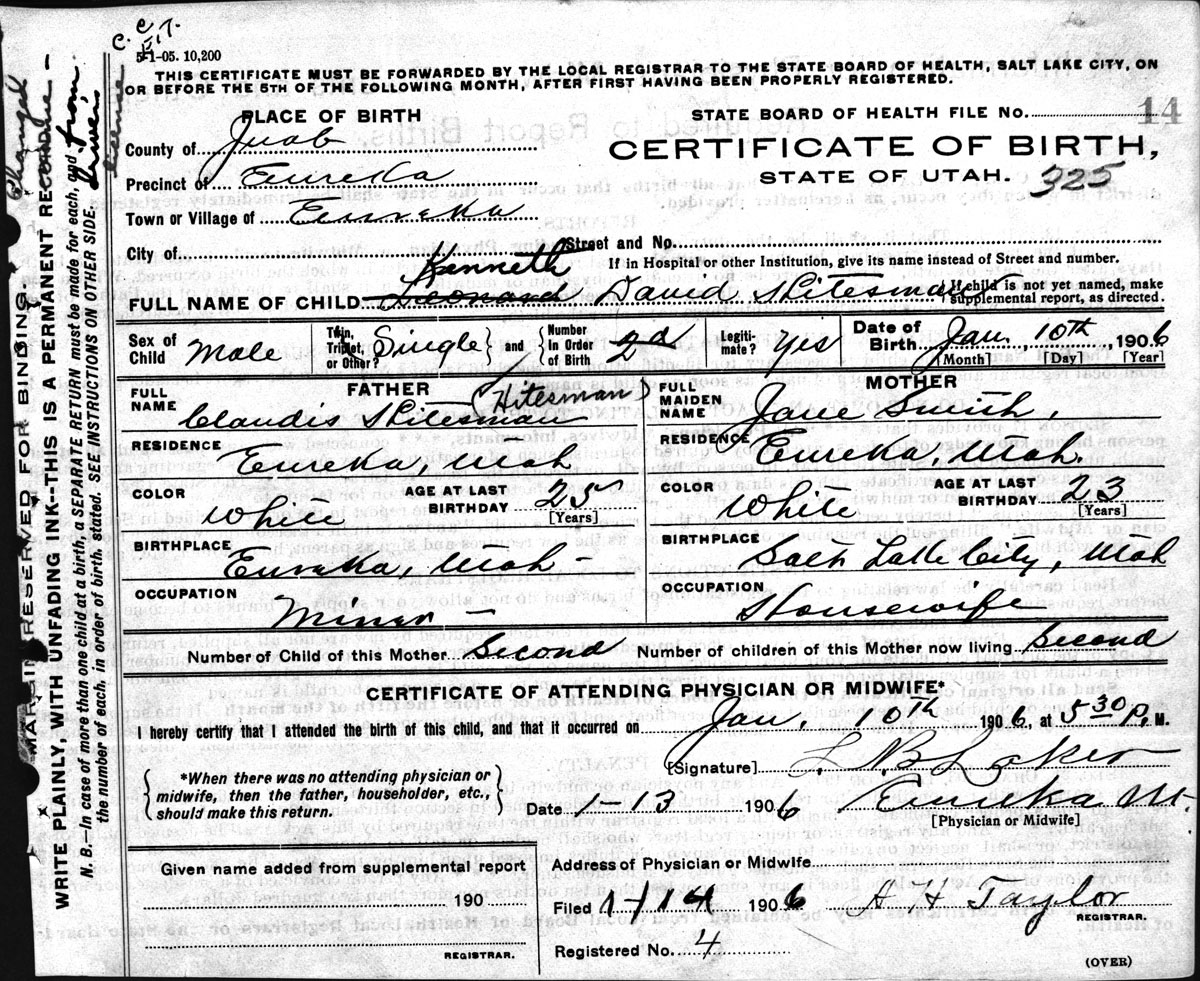 C. C. E. T.
5-1-05. 10,200
THIS CERTIFICATE MUST BE FORWARDED BY THE LOCAL REGISTRAR TO THE STATE BOARD OF HEALTH, SALT LAKE CITY, ON
OR BEFORE THE 5TH OF THE FOLLOWING MONTH, AFTER FIRST HAVING BEEN PROPERLY REGISTERED.
PLACE OF BIRTH
STATE BOARD OF HEALTH FILE No. 14
County of Juab
CERTIFICATE OF BIRTH,
Precinct of Eureka
STATE OF UTAH. 325
Town or Village of Eureka
City of Street and No.
If in Hospital or other Institution, give its name instead of Street and number.
Kenneth
FULL NAME OF CHILD Leonard David Hitesman
If child is not yet named, make
supplemental report, as directed.
Sex of Child Male
Twin, Triplet, or Other? Single and Number In Order of Birth 2d
Legitimate? Yes
Date of Birth Jan. 10th, 1906
[Month] [Day] [Year]
FATHER
FULL NAME Claudis Hitesman (Hitesman)
MOTHER
FULL MAIDEN NAME Jane Smith.
RESIDENCE Eureka, Utah
RESIDENCE Eureka, Utah.
COLOR White AGE AT LAST BIRTHDAY 25
[Years]
COLOR White AGE AT LAST BIRTHDAY 23
[Years]
BIRTHPLACE Eureka, Utah -
BIRTHPLACE Salt Lake City, Utah
OCCUPATION Miner -
OCCUPATION Housewife
Number of Child of this Mother Second Number of children of this Mother now living Second
CERTIFICATE OF ATTENDING PHYSICIAN OR MIDWIFE*
I hereby certify that I attended the birth of this child, and that it occurred on Jan, 10th 1906, at 5 30 P. M.
*When there was no attending physician or
midwife, then the father, householder, etc.,
should make this return.
[Signature] L. B. Laker
Date 1-13 1906 Eureka Ut.
[Physician or Midwife]
Given name added from supplemental report
190
REGISTRAR.
Address of Physician or Midwife
Filed 1-14 1906 A H Taylor
REGISTRAR.
Registered No. 4
(OVER)
MARGIN RESERVED FOR BINDING.
WRITE PLAINLY, WITH UNFADING INK--THIS IS A PERMANENT RECORD.
N. B.—In case of more than one child at a birth, a SEPARATE RETURN must be made for each, and
the number of each, in order of birth, stated. SEE INSTRUCTIONS ON OTHER SIDE.
Changed
from
license